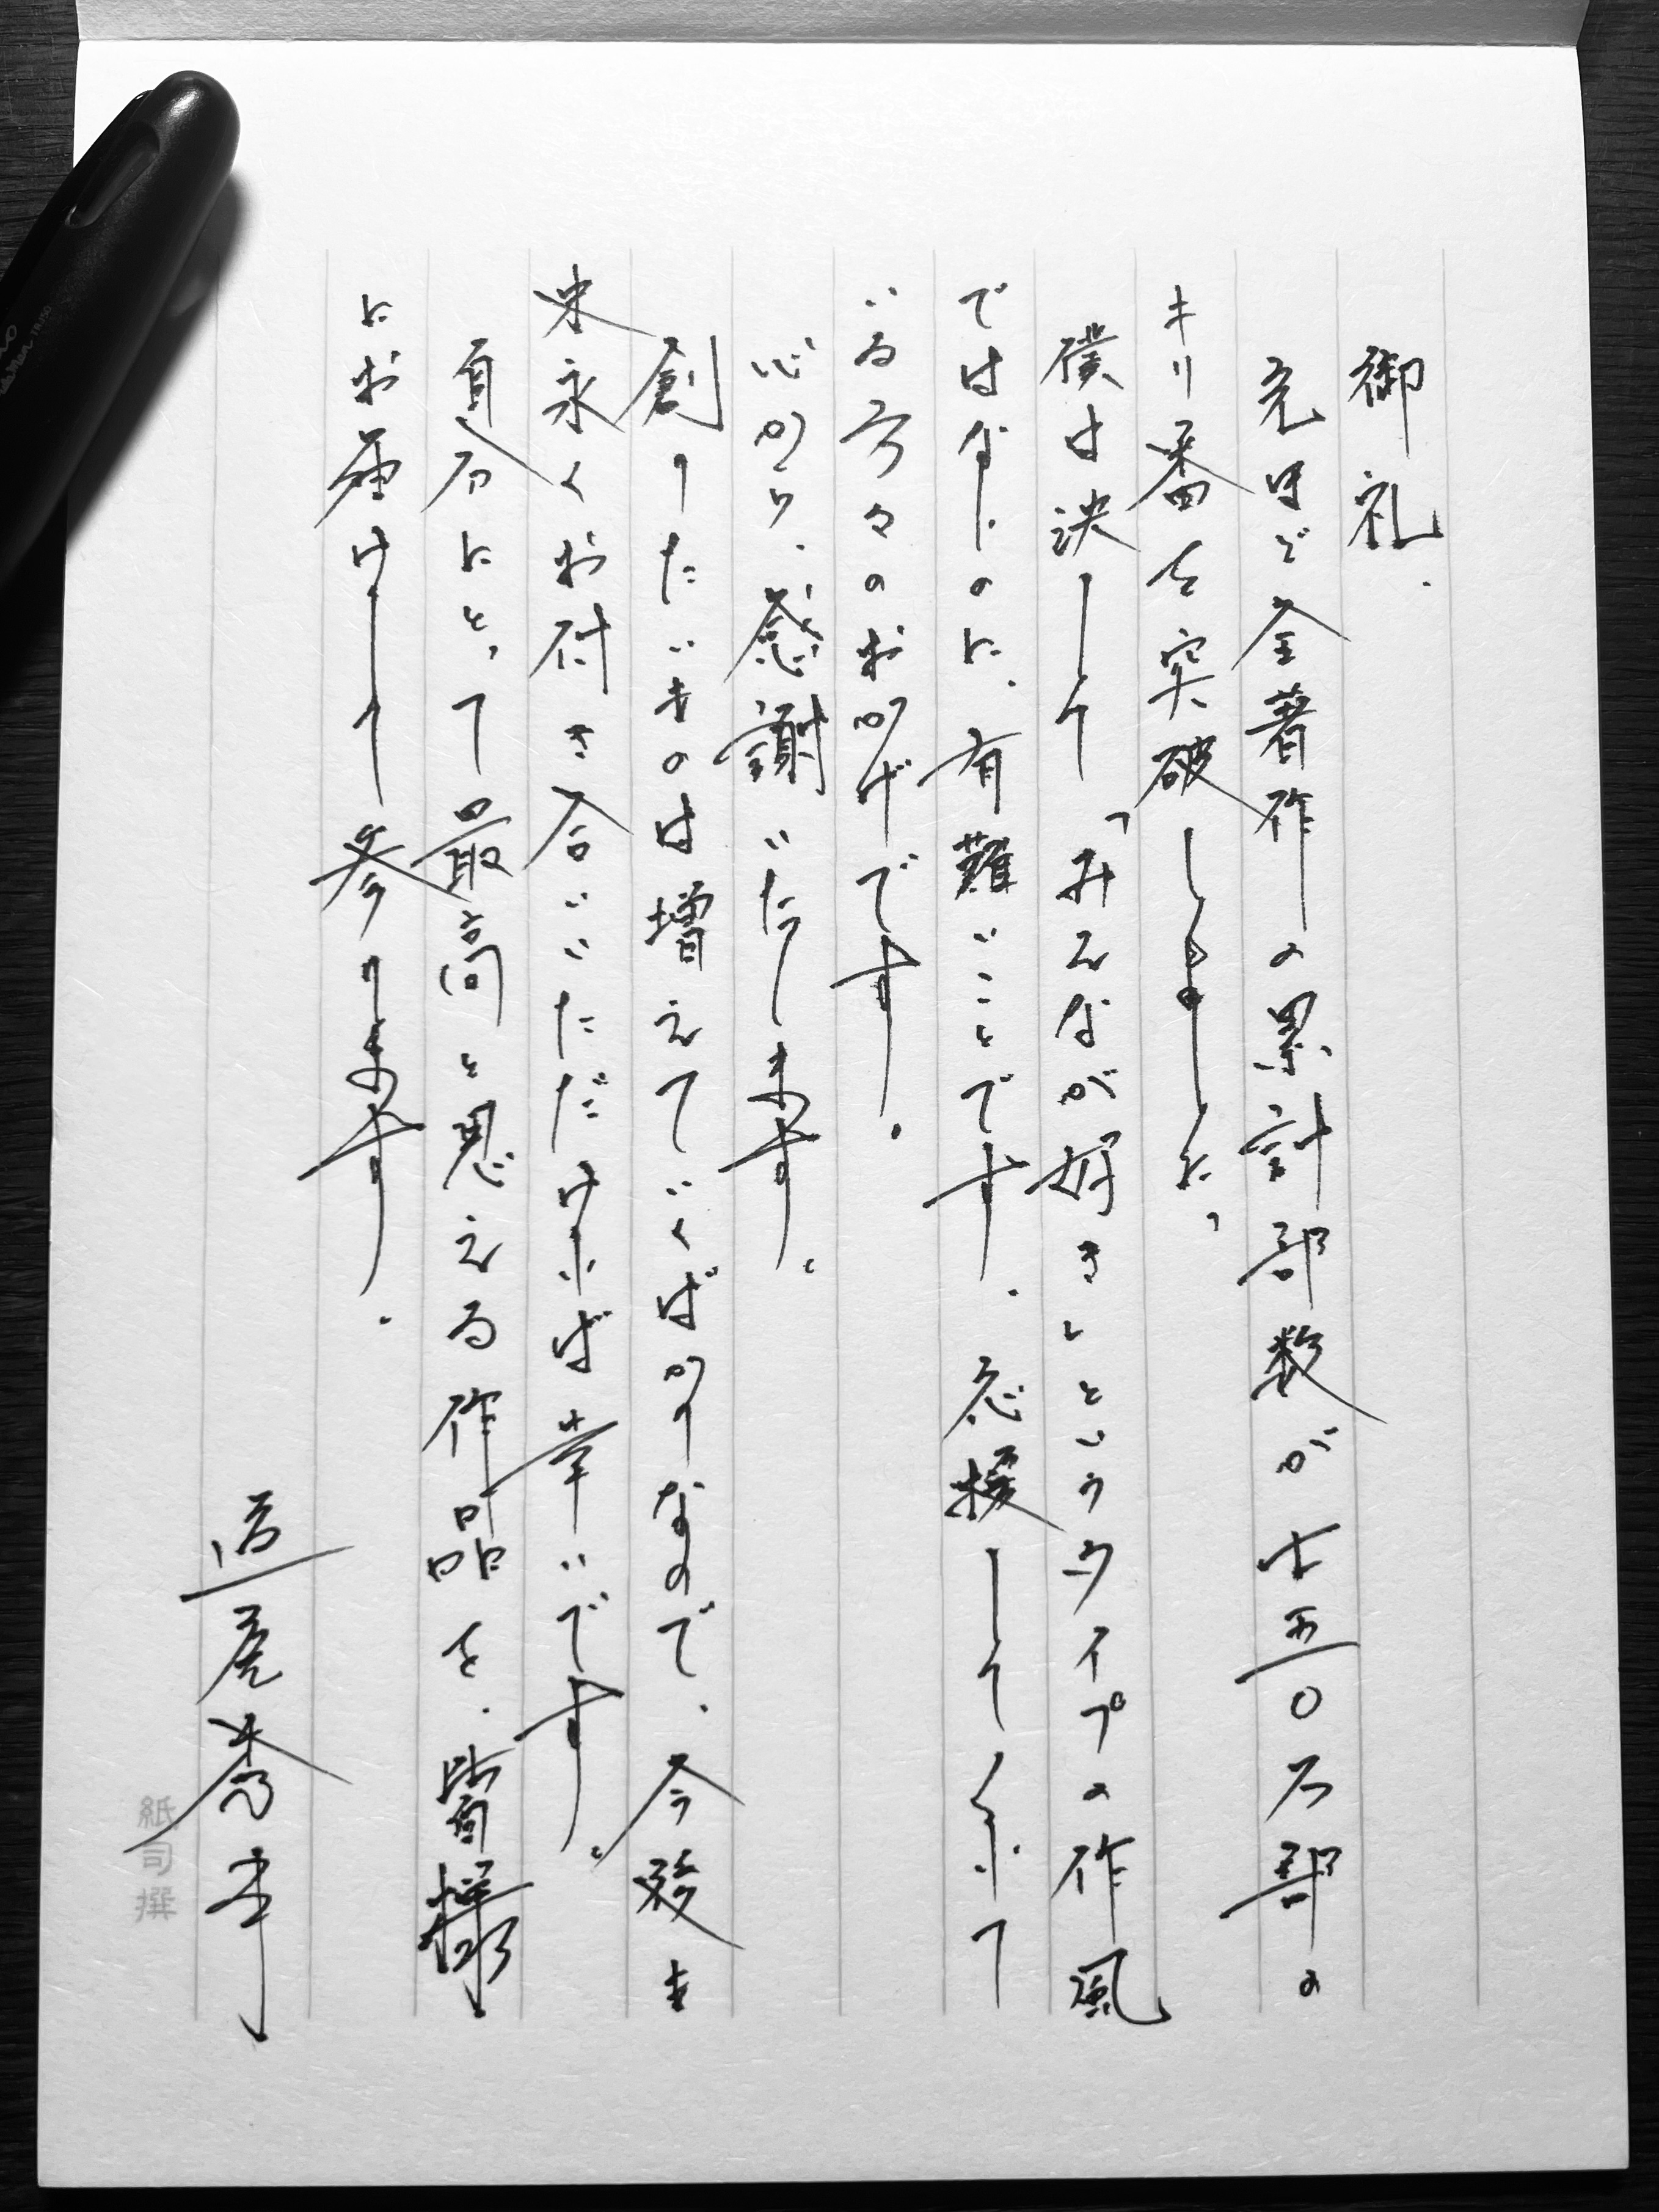 御礼.
先月で全著作の累計部数が七五〇万部の
キリ番を突破しました。
僕は決して「みんなが好き」というタイプの作風
ではないのに、有難いことです。応援してくれて
いる方々のおかげです。
心から、感謝いたします。
創りたいものは増えていくばかりなので、今後も
末永くお付き合いいただければ幸いです。
自分にとって最高と思える作品を、皆様
にお届けして参ります。
道尾秀介
紙司撰
TRJ50